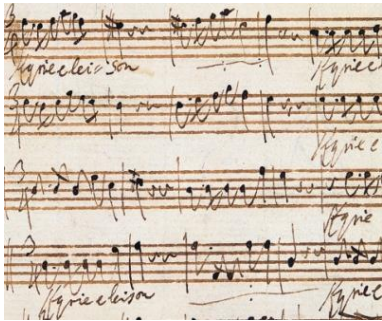 Kyrie eleison
Kyrie e
Kyrie e
Kyrie
Kyrie eleison Kyrie e